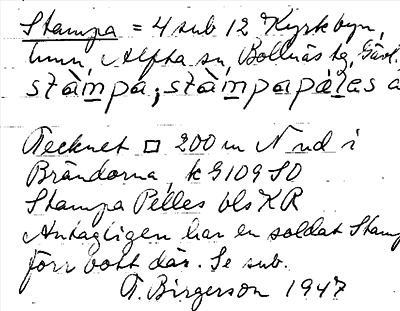 Stampa = 4 sub 12 Kyrkbyn,
hmn, Alfta sn, Bollnäs tg, Gävl.
stàmpa, stàmpapàles a
Tecknet □ 200 m N nd i
Brändorna, k G109 SO
Stampa Pelles bls KR
Antagligen har en soldat Stamp
förr bott där. Se sub.
T. Birgerson 1947